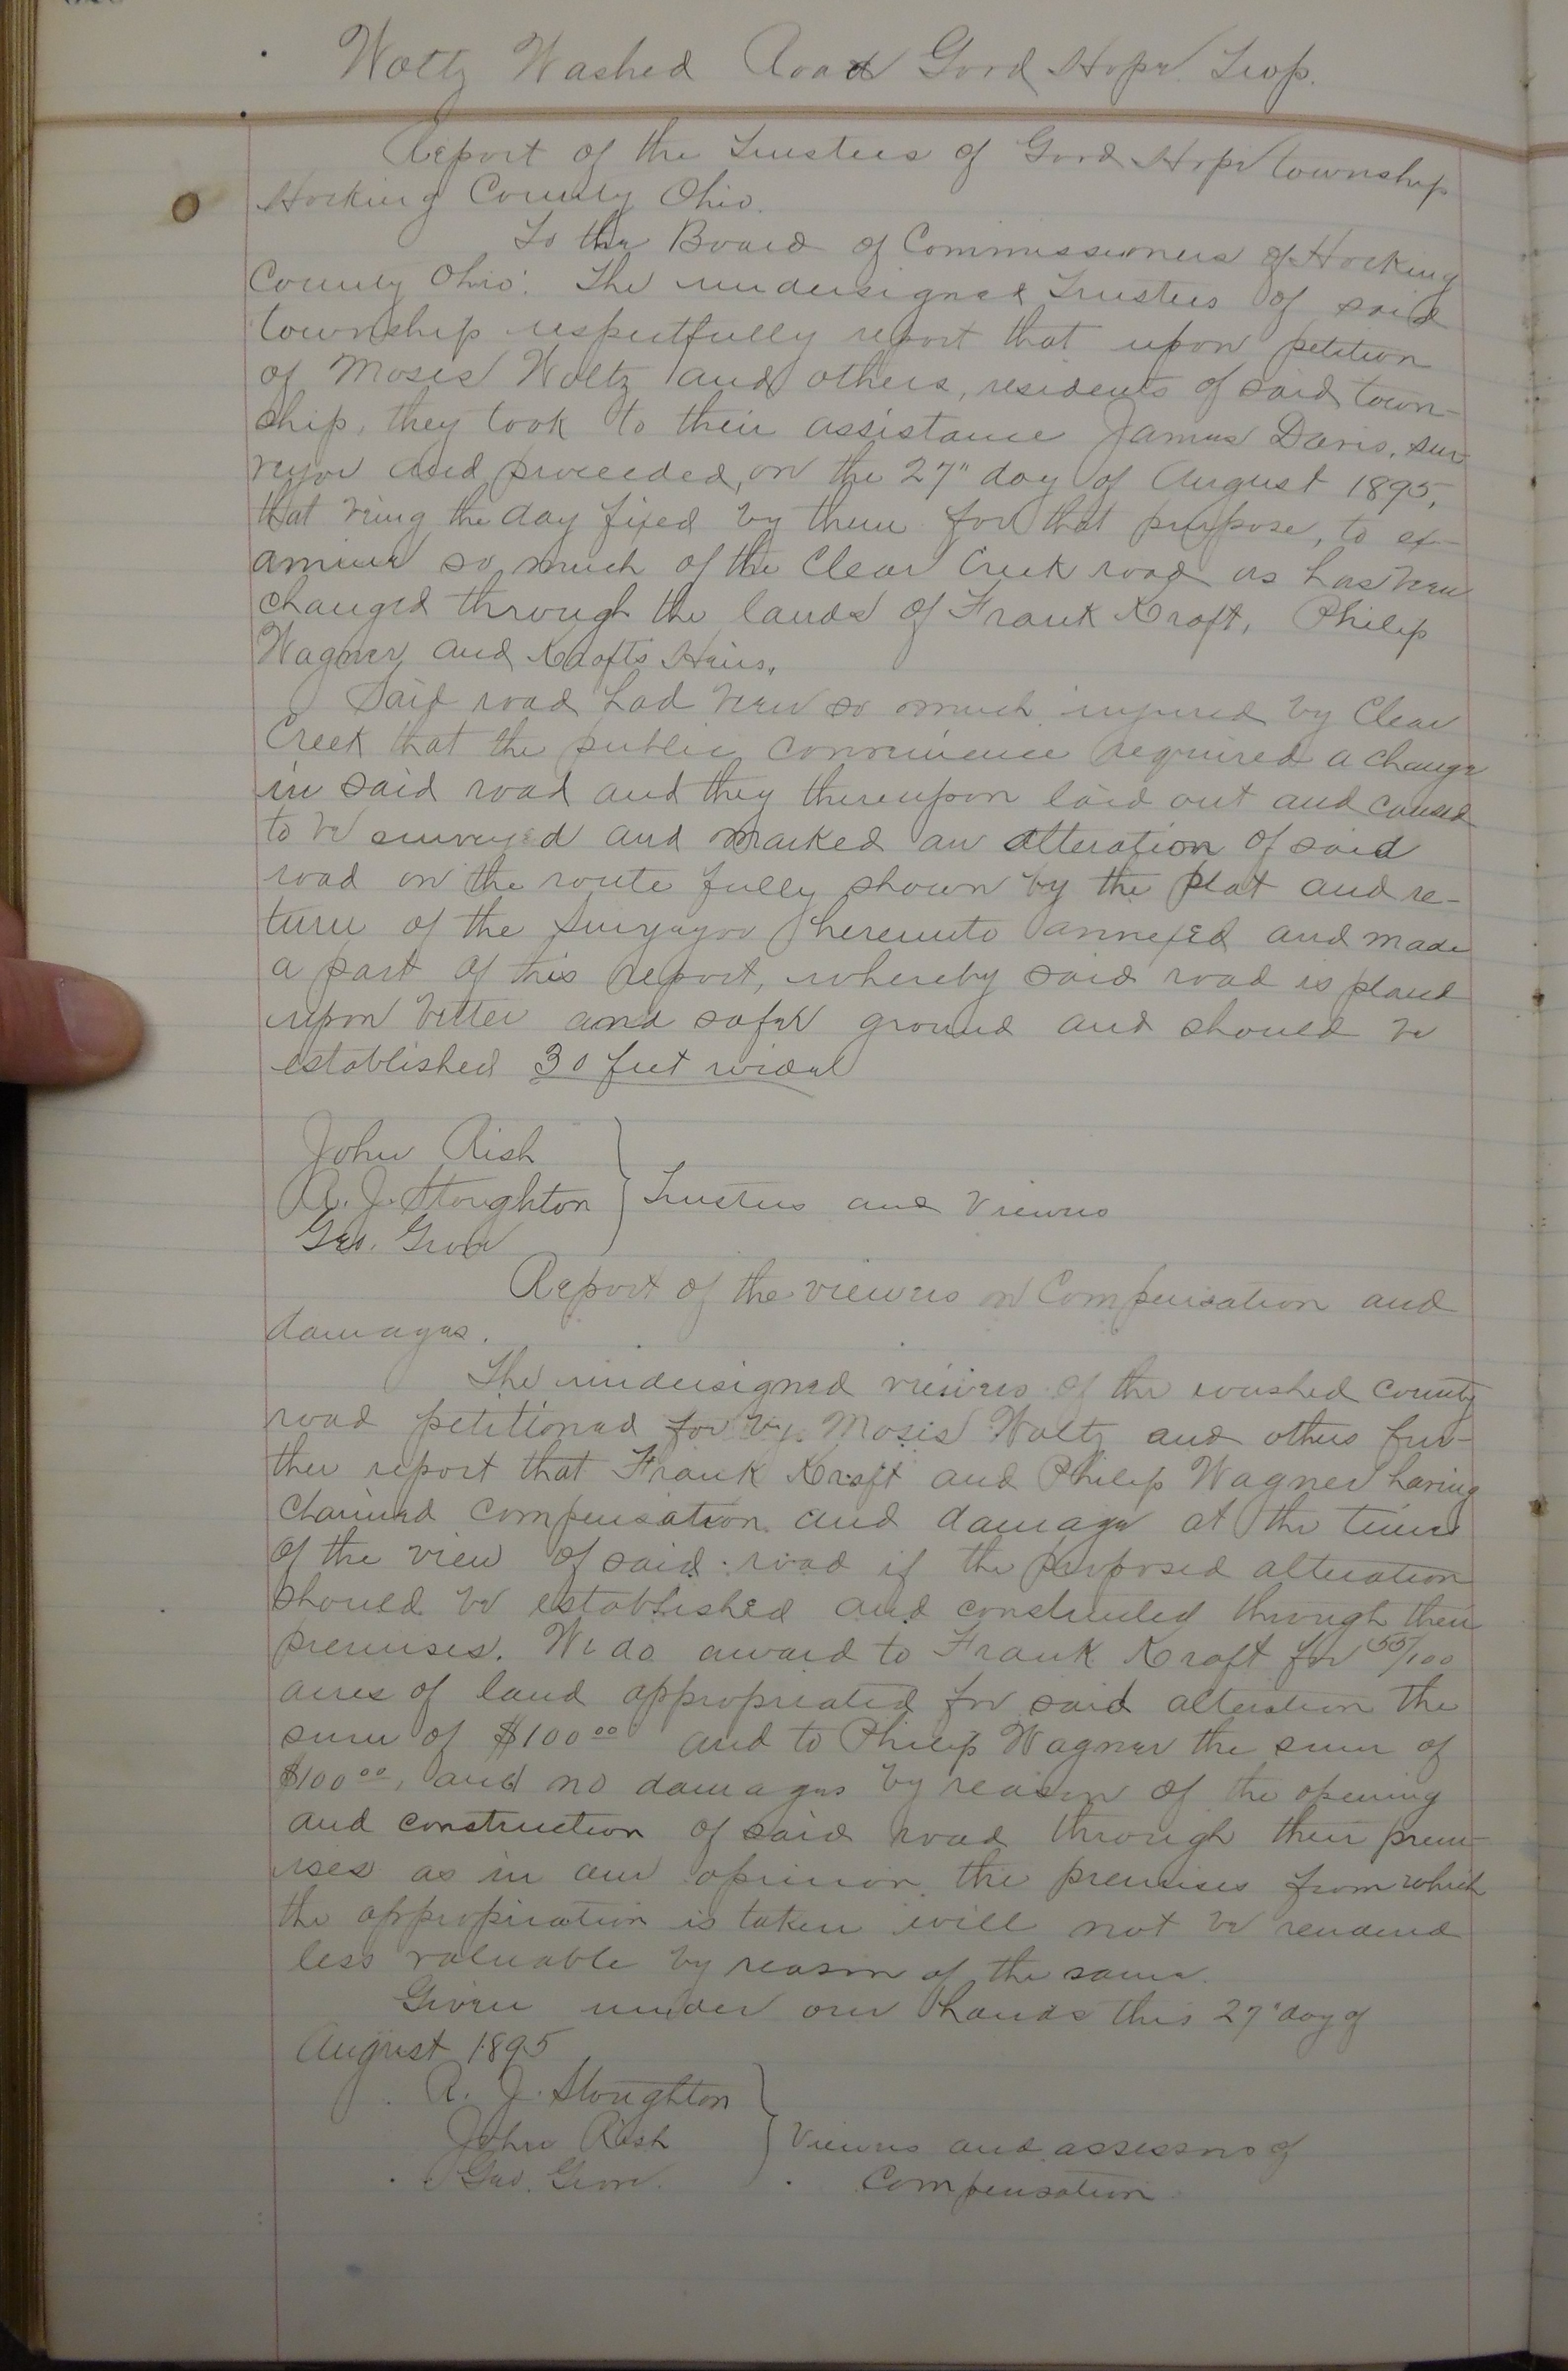 Woltz Washed Road Good Hope Twp.
Report of the Trustees of Good Hope township
Hocking County Ohio.
To the Board of Commissioners of Hocking
County Ohio: The undersigned Trustees of said
township respectfully report that upon petition
of Moses Woltz and others, residents of said town-
ship, they took to their assistance James Davis, sur
veyor and proceeded, on the 27" day of August 1895,
that being the day fixed by them for that purpose, to ex-
amine so much of the Clear Creek road as has been
changed through the lands of Frank Kraft, Philip
Wagner and Krafts Heirs.
Said road had been so much injured by Clear
Creek that the public convenience required a change
in said road and they thereupon laid out and caused
to be surveyed and marked an alteration of said
road on the route fully shown by the plat and re-
turn of the Surveyor hereunto annexed and made
a part of this report, whereby said road is placed
upon better and safer ground and should be
established 30 feet wide
John Rish
R. J. Stoughton } Trustees and Viewers
Geo. Grow
Report of the viewers on Compensation and
damages.
The undersigned viewers of the washed county
road petitioned for by Moses Woltz and others fur-
ther report that Frank Kraft and Philip Wagner having
claimed compensation and damage at the time
of the view of said road if the proposed alteration
should be established and constructed through their
premises. We do award to Frank Kraft for 55/100
acres of land appropriated for said alteration the
sum of $100 00 and to Philip Wagner the sum of
$100 00, and no damages by reason of the opening
and construction of said road through their prem-
ises as in our opinion the premises from which
the appropriation is taken will not be rendered
less valuable by reason of the same.
Given under our hands this 27" day of
August 1895
R. J. Stoughton }
John Rish } Viewers and assessors of
Geo. Grow. Compensation